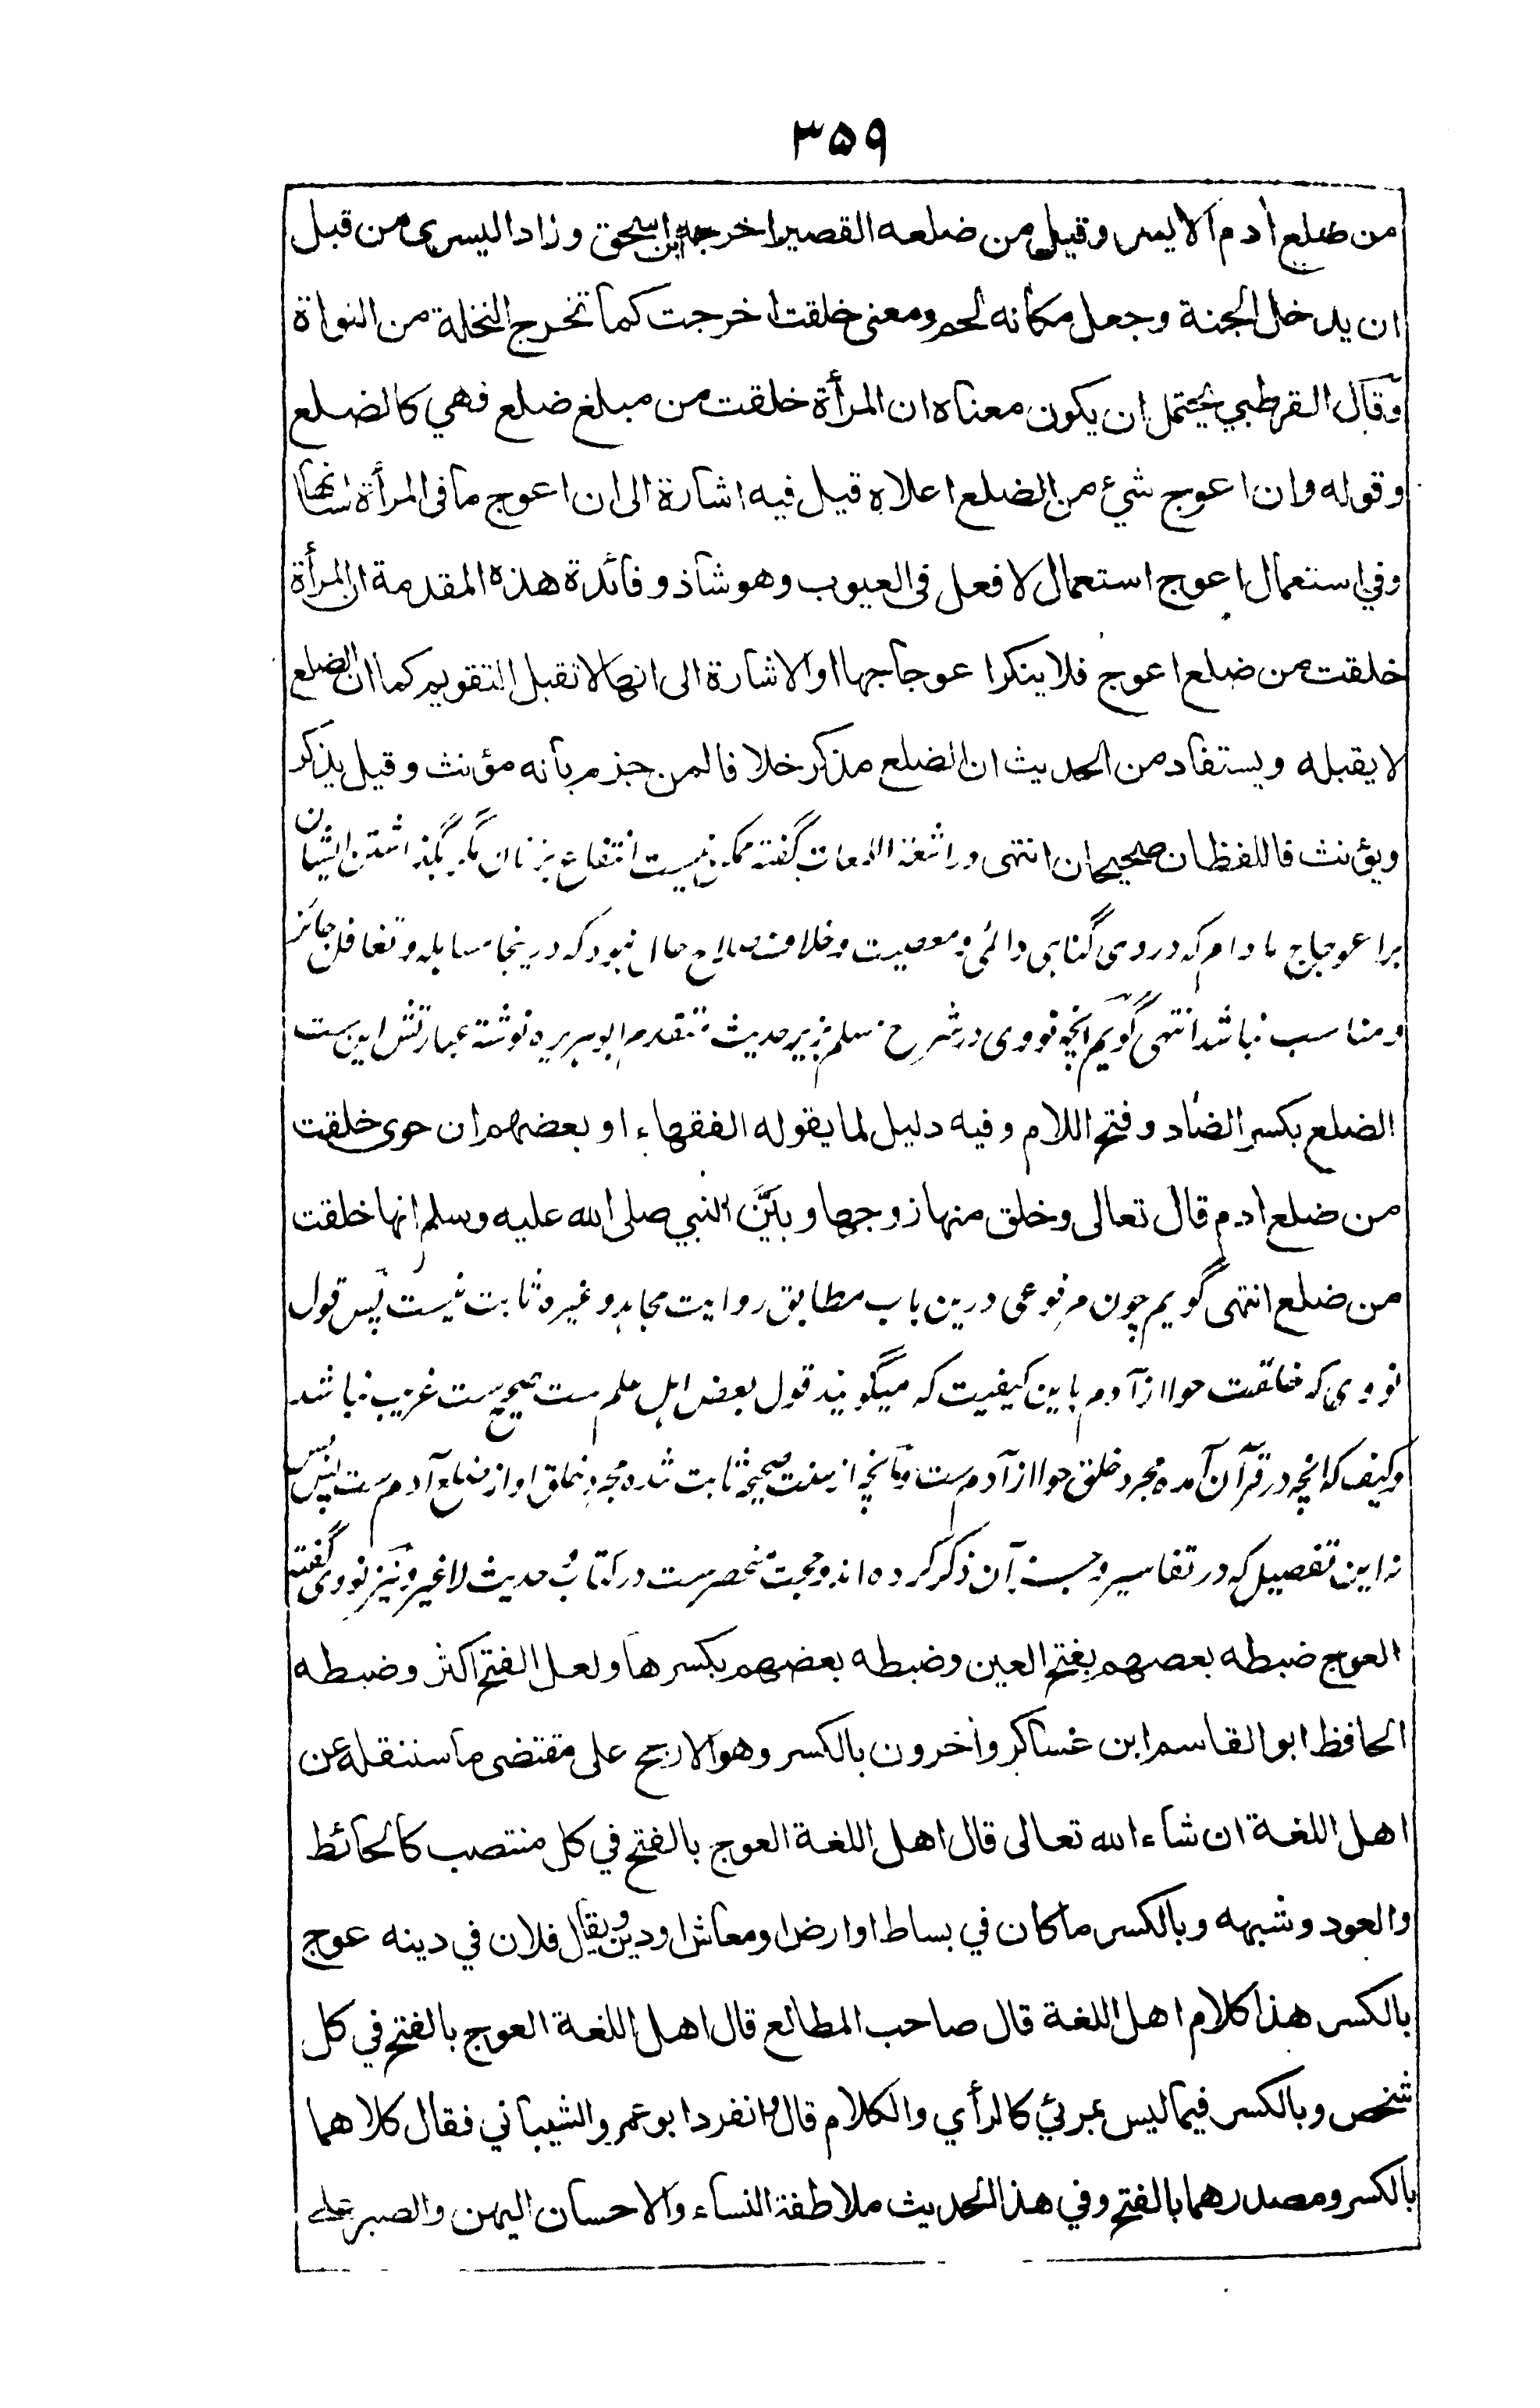 ۳۵۹
من ضلع أدم الايسر وقيل من ضلعه القصير اخرجه ابن اسحق وزاد اليسرى من قبل
ان يدخل الجنة وجعل مكانه لحم ومعنى خلقت اخرجت كما تخرج النخلة من النواة
وقال القرطبي يحتمل ان يكون معناه ان المرأة خلقت من مبلغ ضلع فهي كالضلع
وقوله وان اعوج شيء من الضلع اعلاه قيل فيه اشارة الى ان اعوج ما في المرأة لسانها
وفي استعمال اعوج استعمال لافعل في العيوب وهو شاذ وفائدة هذه المقدمة ان المرأة
خلقت من ضلع اعوج فلا ينكر اعوجاجها او الاشارة الى انها لا تقبل التقويم كما ان الضلع
لا يقبله ويستفاد من الحديث ان الضلع مذكر خلافا لمن جزم بانه مؤنث وقيل يذكر
ويؤنث فاللفظان صحيحان انتهى ودر اشعة اللمعات گفته ممكن نيست انتفاع بزنان مگر بگذاشتن ايشان
بر اعوجاج مادام كه در وى گناهى دائمى ومعصيت وخلاف صلاح حال نبود كه درينجا مساهله وتغافل جائز
ومناسب نباشد انتهى گويم انچه نووى در شرح مسلم زير حديث متقدم ابو هريره نوشته عبارتش اينست
الضلع بكسر الضاد وفتح اللام وفيه دليل لما يقوله الفقهاء او بعضهم ان حوى خلقت
من ضلع ادم قال تعالى وخلق منها زوجها وبَيَّن النبي صلى الله عليه وسلم انها خلقت
من ضلع انتهى گويم چون مرفوعى درين باب مطابق روايت مجاهد وغيره ثابت نيست پس قول
نووى كه خلقت حوا از آدم باين كيفيت كه ميگويند قول بعض اهل علم ست صحيح ست غريب نباشد
وكيف كه انچه در قرآن آمده مجرد خلق حوا از آدم ست وآنچه از سنت صحيحه ثابت شده مجرد خلق او از ضلع آدم ست پس
نه اين تفصيل كه در تفاسير آن ذكر كرده اند وحجت منحصرست در كتاب وحديث لاغير ونيز نووى گفته
العوج ضبطه بعضهم بفتح العين وضبطه بعضهم بكسرها ولعل الفتح اكثر وضبطه
الحافظ ابو القاسم ابن عساكر وأخرون بالكسر وهو الارجح على مقتضى ما سننقله عن
اهل اللغة ان شاء الله تعالى قال اهل اللغة العوج بالفتح في كل منتصب كالحائط
والعود وشبهه وبالكسر ما كان في بساط او ارض او معاش او دين ويقال فلان في دينه عوج
بالكسر هذا كلام اهل اللغة قال صاحب المطالع قال اهل اللغة العوج بالفتح في كل
شخص وبالكسر فيما ليس بمرئي كالرأي والكلام قال وانفرد ابو عمرو الشيباني فقال كلاهما
بالكسر ومصدرهما بالفتح وفي هذا الحديث ملاطفة النساء والاحسان اليهن والصبر على